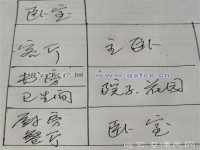 卧室
客厅
主卧
楼梯间
卫生间
院子花园
厨房
餐厅
卧室
www.gyfce.cn